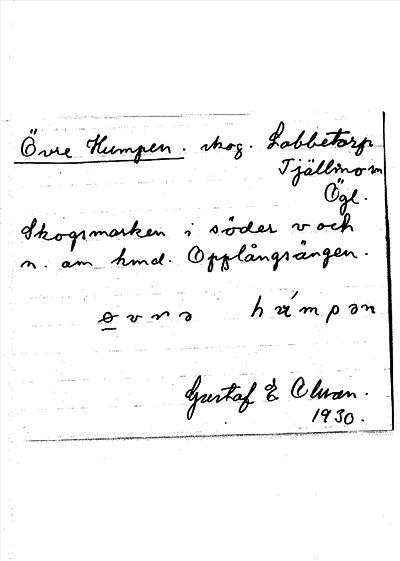 Övre Humpen. skog. Labbetorp
Tjällmo sn
Ögl.
Skogsmarken i söder v och
n. om hmd. Opplångsängen.
ɵvrə húmpən
Gustaf E Olson.
1930.